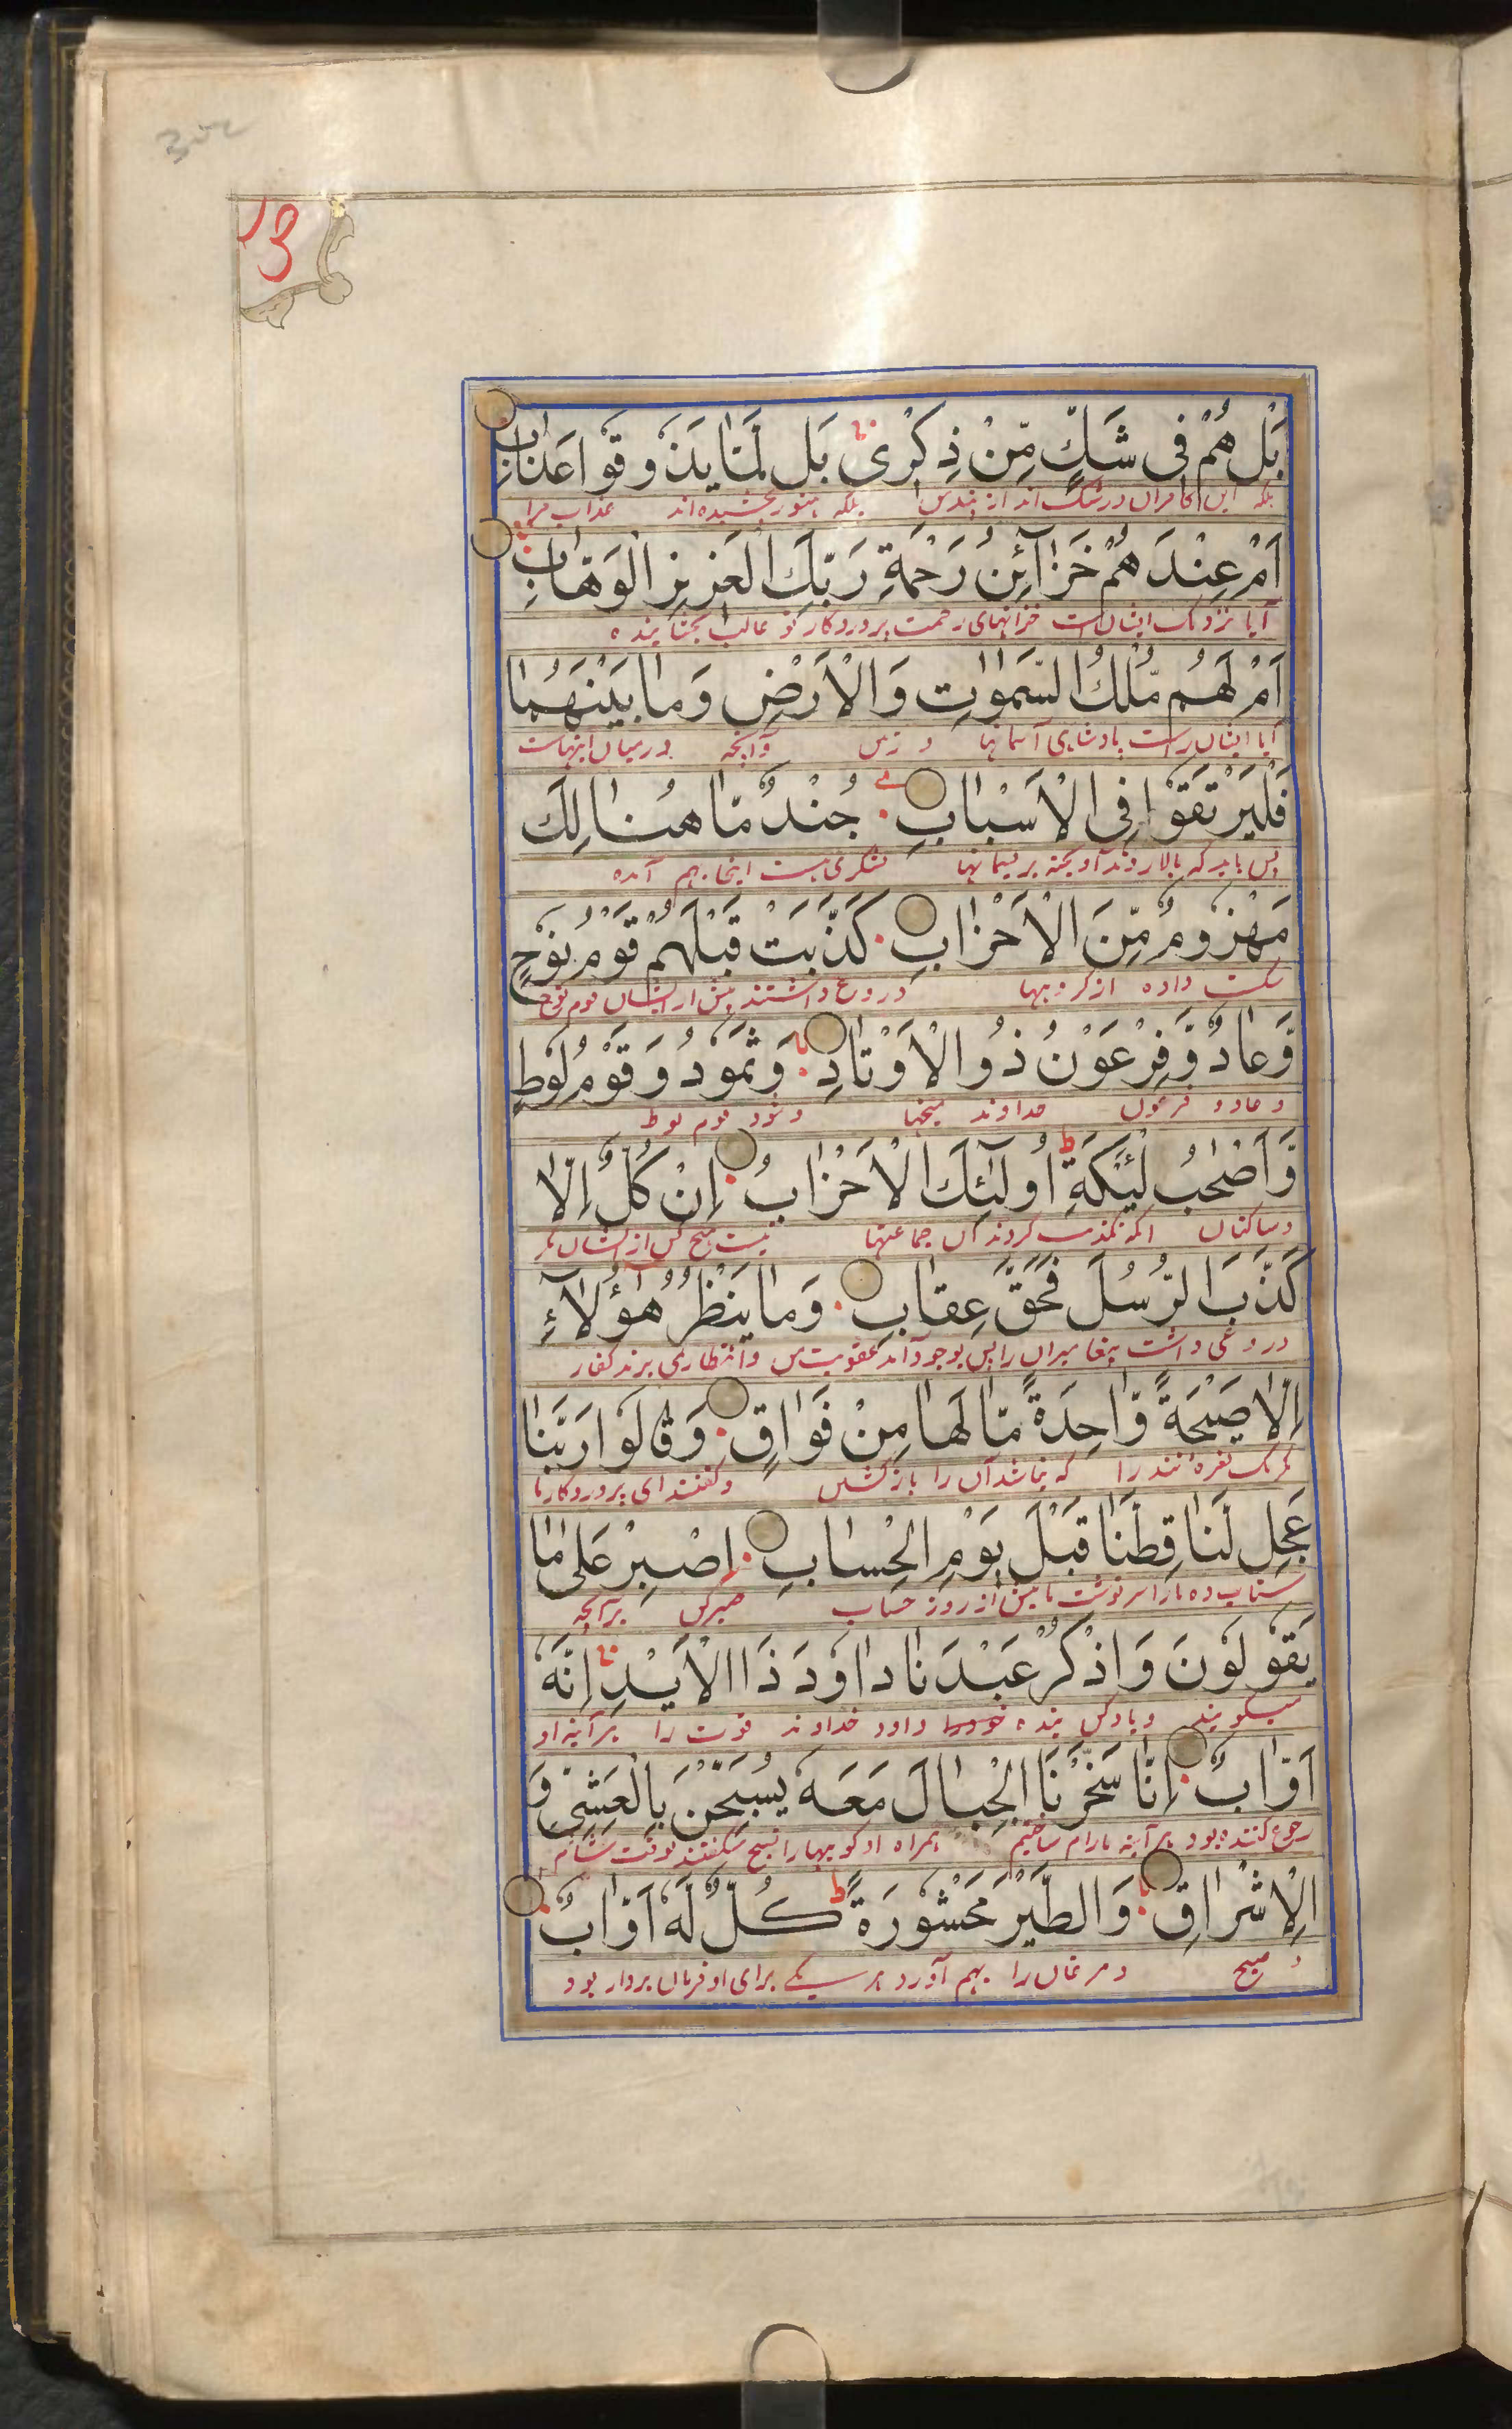 ص
بَلْ هُمْ فِى شَكٍّ مِّنْ ذِكْرِى بَلْ لَمَّا يَذُوقُوا عَذَابِ
بلکه این کافران در شک اند از پند من بلکه هنوز نچشیده اند عذاب مرا
اَمْ عِنْدَهُمْ خَزَآئِنُ رَحْمَةِ رَبِّكَ الْعَزِيزِ الْوَهَّابِ
آیا نزدیک ایشان است خزانهای رحمت پروردکار تو غالب بخشاینده
اَمْ لَهُم مُّلْكُ السَّمٰوٰتِ وَالْاَرْضِ وَمَا بَيْنَهُمَا
آیا ایشان راست پادشاهی آسمانها و زمین وآنچه درمیان اینهاست
فَلْيَرْتَقُوا فِى الْاَسْبَابِ جُنْدٌ مَّا هُنَالِكَ
پس باید که بالا روند آویخته بریسمانها لشکری هست اینجا بهم آمده
مَهْزُومٌ مِّنَ الْاَحْزَابِ كَذَّبَتْ قَبْلَهُمْ قَوْمُ نُوحٍ
شکست داده از کروهها دروغ داشتند پیش از ایشان قوم نوح
وَّعَادٌ وَّفِرْعَوْنُ ذُو الْاَوْتَادِ وَثَمُودُ وَقَوْمُ لُوطٍ
و عاد و فرعون خداوند میخها و ثمود قوم لوط
وَّاَصْحٰبُ لْئَيْكَةِ اُولٰٓئِكَ الْاَحْزَابُ اِنْ كُلٌّ اِلَّا
وساکنان ایکه تکذیب کردند آن جماعتها نیست هیچ کس از ایشان مکر
كَذَّبَ الرُّسُلَ فَحَقَّ عِقَابِ وَمَا يَنْظُرُ هٰٓؤُلَآءِ
دروغی داشت پیغامبران را پس بوجود آمد عقوبت من وانتظار نمی برند کفار
اِلَّا صَيْحَةً وَّاحِدَةً مَّا لَهَا مِنْ فَوَاقٍ وَقَالُوا رَبَّنَا
مکر یک نعره تند را که نباشد آن را بازکشتن وکفتند ای پروردکار ما
عَجِّل لَّنَا قِطَّنَا قَبْلَ يَوْمِ الْحِسَابِ اِصْبِرْ عَلٰى مَا
شتاب ده ما را سرنوشت ما پیش از روز حساب صبر کن برآنچه
يَقُولُونَ وَاذْكُرْ عَبْدَنَا دَاوٗدَ ذَا الْاَيْدِ اِنَّهٗ
میکویند ویاد کن بنده خود را داود خداوند قوت را هرآینه او
اَوَّابٌ اِنَّا سَخَّرْنَا الْجِبَالَ مَعَهٗ يُسَبِّحْنَ بِالْعَشِىِّ وَ
رجوع کننده بود هرآینه ما رام ساختیم همراه او کوهها را تسبیح میکفتند بوقت شام
الْاِشْرَاقِ وَالطَّيْرَ مَحْشُورَةً كُلٌّ لَّهٗ اَوَّابٌ
و صبح و مرغان را بهم آورده هر یکے برای او فرمان بردار بود